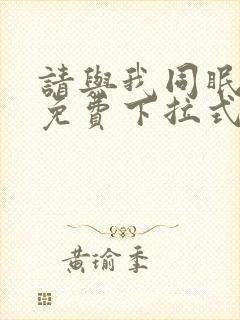 請與我同眠
免費下拉式
黃瑜季